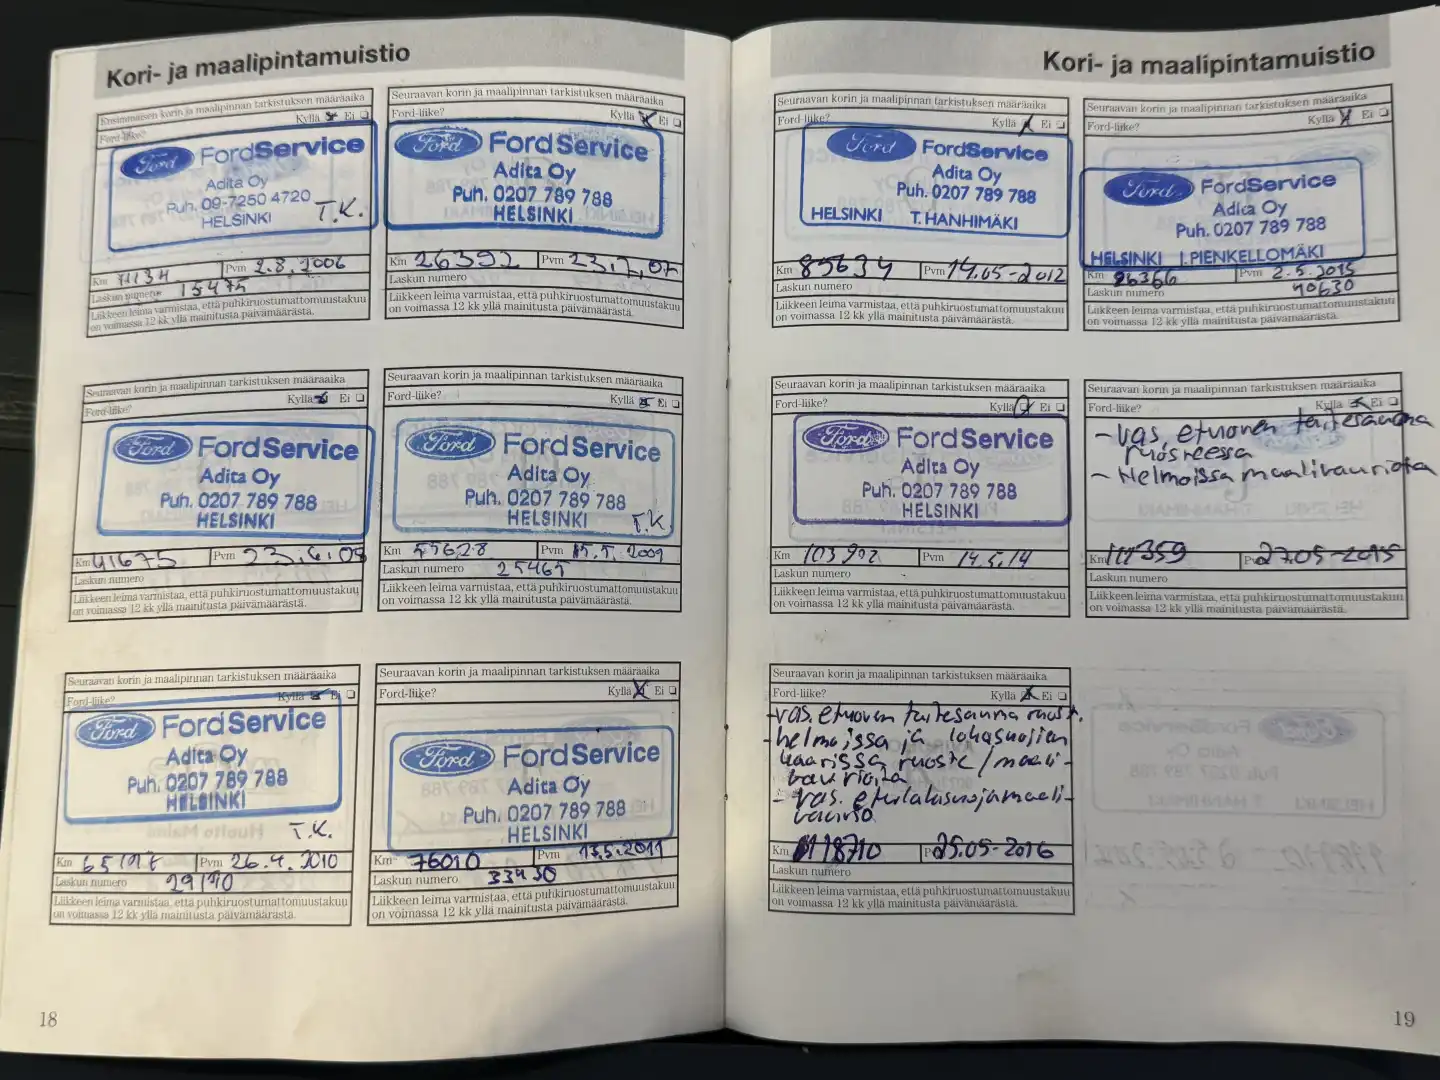 Kori- ja maalipintamuistio
Ensimmäisen korin ja maalipinnan tarkistuksen määräaika
Ford-liike?
Kyllä Ei
Ford FordService
Adita Oy
Puh. 09-7250 4720
HELSINKI T.K.
Km 11134 Pvm 2.8.2006
Laskun numero 15475
Liikkeen leima varmistaa, että puhkiruostumattomuustakuu
on voimassa 12 kk yllä mainitusta päivämäärästä.
Seuraavan korin ja maalipinnan tarkistuksen määräaika
Ford-liike? Kyllä Ei
Ford FordService
Adita Oy
Puh. 0207 789 788
HELSINKI
Km 26392 Pvm 23.7.07
Laskun numero
Liikkeen leima varmistaa, että puhkiruostumattomuustakuu
on voimassa 12 kk yllä mainitusta päivämäärästä.
Seuraavan korin ja maalipinnan tarkistuksen määräaika
Ford-liike? Kyllä Ei
Ford FordService
Adita Oy
Puh. 0207 789 788
HELSINKI
Km 41675 Pvm
Laskun numero
Liikkeen leima varmistaa, että puhkiruostumattomuustakuu
on voimassa 12 kk yllä mainitusta päivämäärästä.
Seuraavan korin ja maalipinnan tarkistuksen määräaika
Ford-liike? Kyllä Ei
Ford FordService
Adita Oy
Puh. 0207 789 788
HELSINKI T.K.
Km 55628 Pvm 15.5.2009
Laskun numero 25465
Liikkeen leima varmistaa, että puhkiruostumattomuustakuu
on voimassa 12 kk yllä mainitusta päivämäärästä.
Seuraavan korin ja maalipinnan tarkistuksen määräaika
Ford-liike? Kyllä Ei
Ford FordService
Adita Oy
Puh. 0207 789 788
HELSINKI
T.K.
Km Pvm 26.4.2010
Laskun numero 29190
Liikkeen leima varmistaa, että puhkiruostumattomuustakuu
on voimassa 12 kk yllä mainitusta päivämäärästä.
Seuraavan korin ja maalipinnan tarkistuksen määräaika
Ford-liike? Kyllä Ei
Ford FordService
Adita Oy
Puh. 0207 789 788
HELSINKI
Km 76010 Pvm 13.5.2011
Laskun numero 33430
Liikkeen leima varmistaa, että puhkiruostumattomuustakuu
on voimassa 12 kk yllä mainitusta päivämäärästä.
18
Kori- ja maalipintamuistio
Seuraavan korin ja maalipinnan tarkistuksen määräaika
Ford-liike? Kyllä Ei
Ford FordService
Adita Oy
Puh. 0207 789 788
HELSINKI T. HANHIMÄKI
Km 85634 Pvm 14.05-2012
Laskun numero
Liikkeen leima varmistaa, että puhkiruostumattomuustakuu
on voimassa 12 kk yllä mainitusta päivämäärästä.
Seuraavan korin ja maalipinnan tarkistuksen määräaika
Ford-liike? Kyllä Ei
Ford FordService
Adita Oy
Puh. 0207 789 788
HELSINKI I. PIENKELLOMÄKI
Km Pvm
Laskun numero 40630
Liikkeen leima varmistaa, että puhkiruostumattomuustakuu
on voimassa 12 kk yllä mainitusta päivämäärästä.
Seuraavan korin ja maalipinnan tarkistuksen määräaika
Ford-liike? Kyllä Ei
Ford FordService
Adita Oy
Puh. 0207 789 788
HELSINKI
Km 103992 Pvm 14.5.14
Laskun numero
Liikkeen leima varmistaa, että puhkiruostumattomuustakuu
on voimassa 12 kk yllä mainitusta päivämäärästä.
Seuraavan korin ja maalipinnan tarkistuksen määräaika
Ford-liike? Kyllä Ei
- vas. etuoven taitesauma
ruosteessa
- Helmoissa maalivaurioita
Km 111359 27.05-2015
Laskun numero
Liikkeen leima varmistaa, että puhkiruostumattomuustakuu
on voimassa 12 kk yllä mainitusta päivämäärästä.
Seuraavan korin ja maalipinnan tarkistuksen määräaika
Ford-liike? Kyllä Ei
-vas. etuoven taitesauma ruost.
-helmoissa ja lokasuojien
kaarissa ruoste/maali-
vaurioita
- vas. etulokasuojamaali-
vaurio
Km 118710 25.05-2016
Laskun numero
Liikkeen leima varmistaa, että puhkiruostumattomuustakuu
on voimassa 12 kk yllä mainitusta päivämäärästä.
19